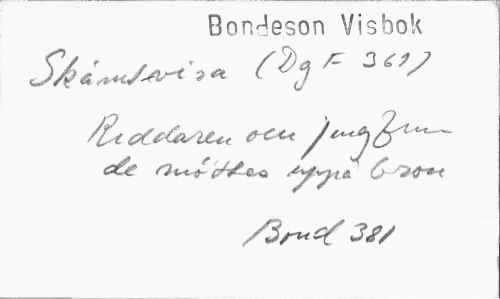 Bondeson Visbok
Skämtvisa (DgF 369)
Riddaren och jungfrun
de möttes uppå bron
Bond 381